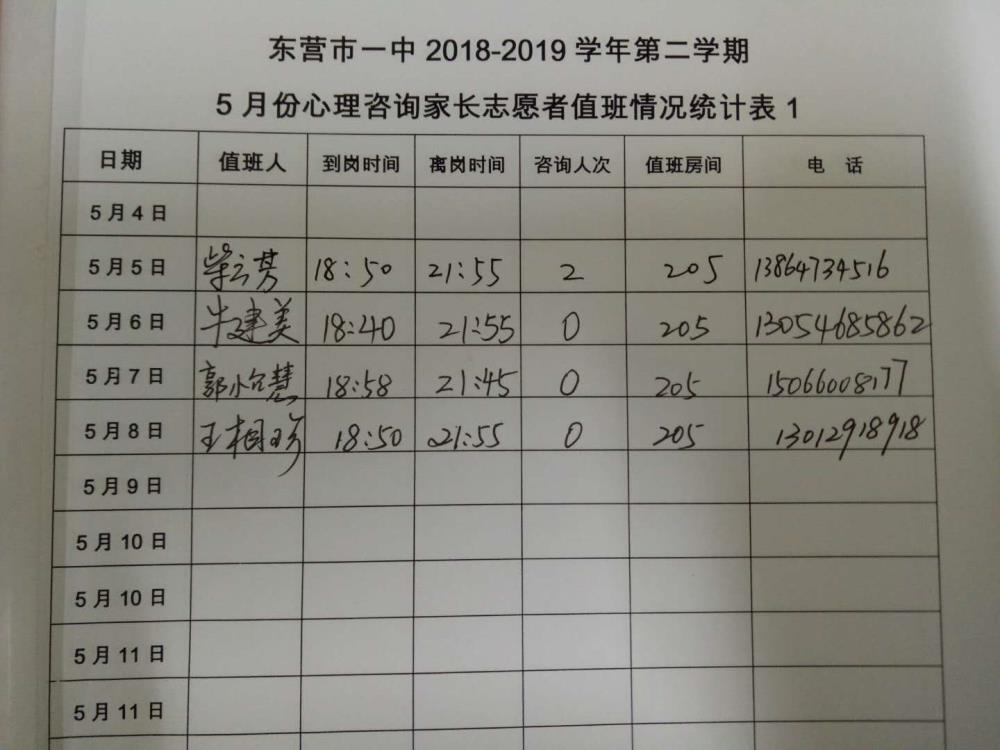 东营市一中 2018-2019 学年第二学期
5月份心理咨询家长志愿者值班情况统计表1
日期 值班人 到岗时间 离岗时间 咨询人次 值班房间 电 话
5月4日
5月5日 柴云芳 18:50 21:55 2 205 13864734516
5月6日 牛建美 18:40 21:55 0 205 13054685862
5月7日 郭小慧 18:58 21:45 0 205 15066008177
5月8日 王相珍 18:50 21:55 0 205 13012918918
5月9日
5月10日
5月10日
5月11日
5月11日